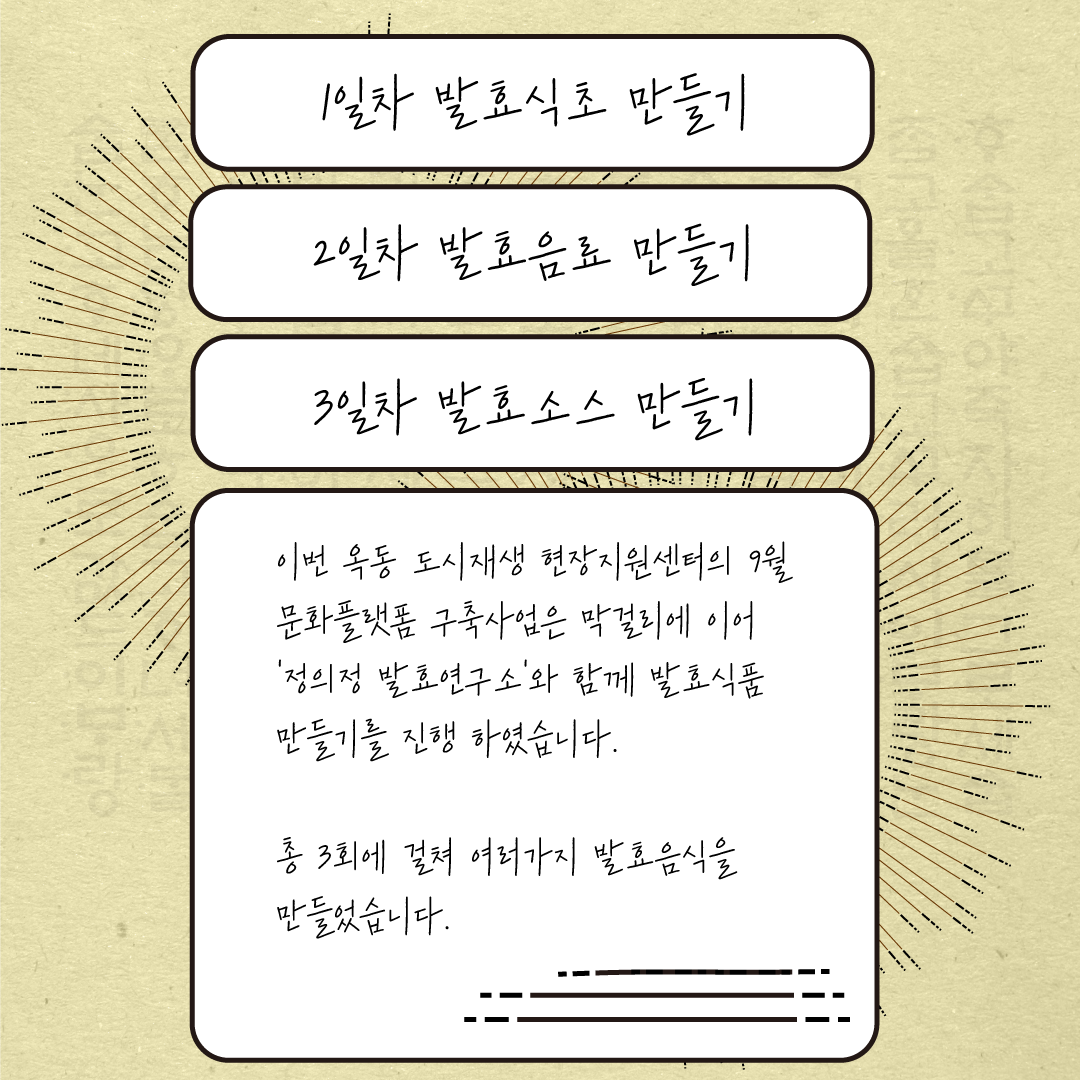 1일차 발효식초 만들기
2일차 발효음료 만들기
3일차 발효소스 만들기
이번 옥동 도시재생 현장지원센터의 9월
문화플랫폼 구축사업은 막걸리에 이어
'정의정 발효연구소'와 함께 발효식품
만들기를 진행 하였습니다.
총 3회에 걸쳐 여러가지 발효음식을
만들었습니다.